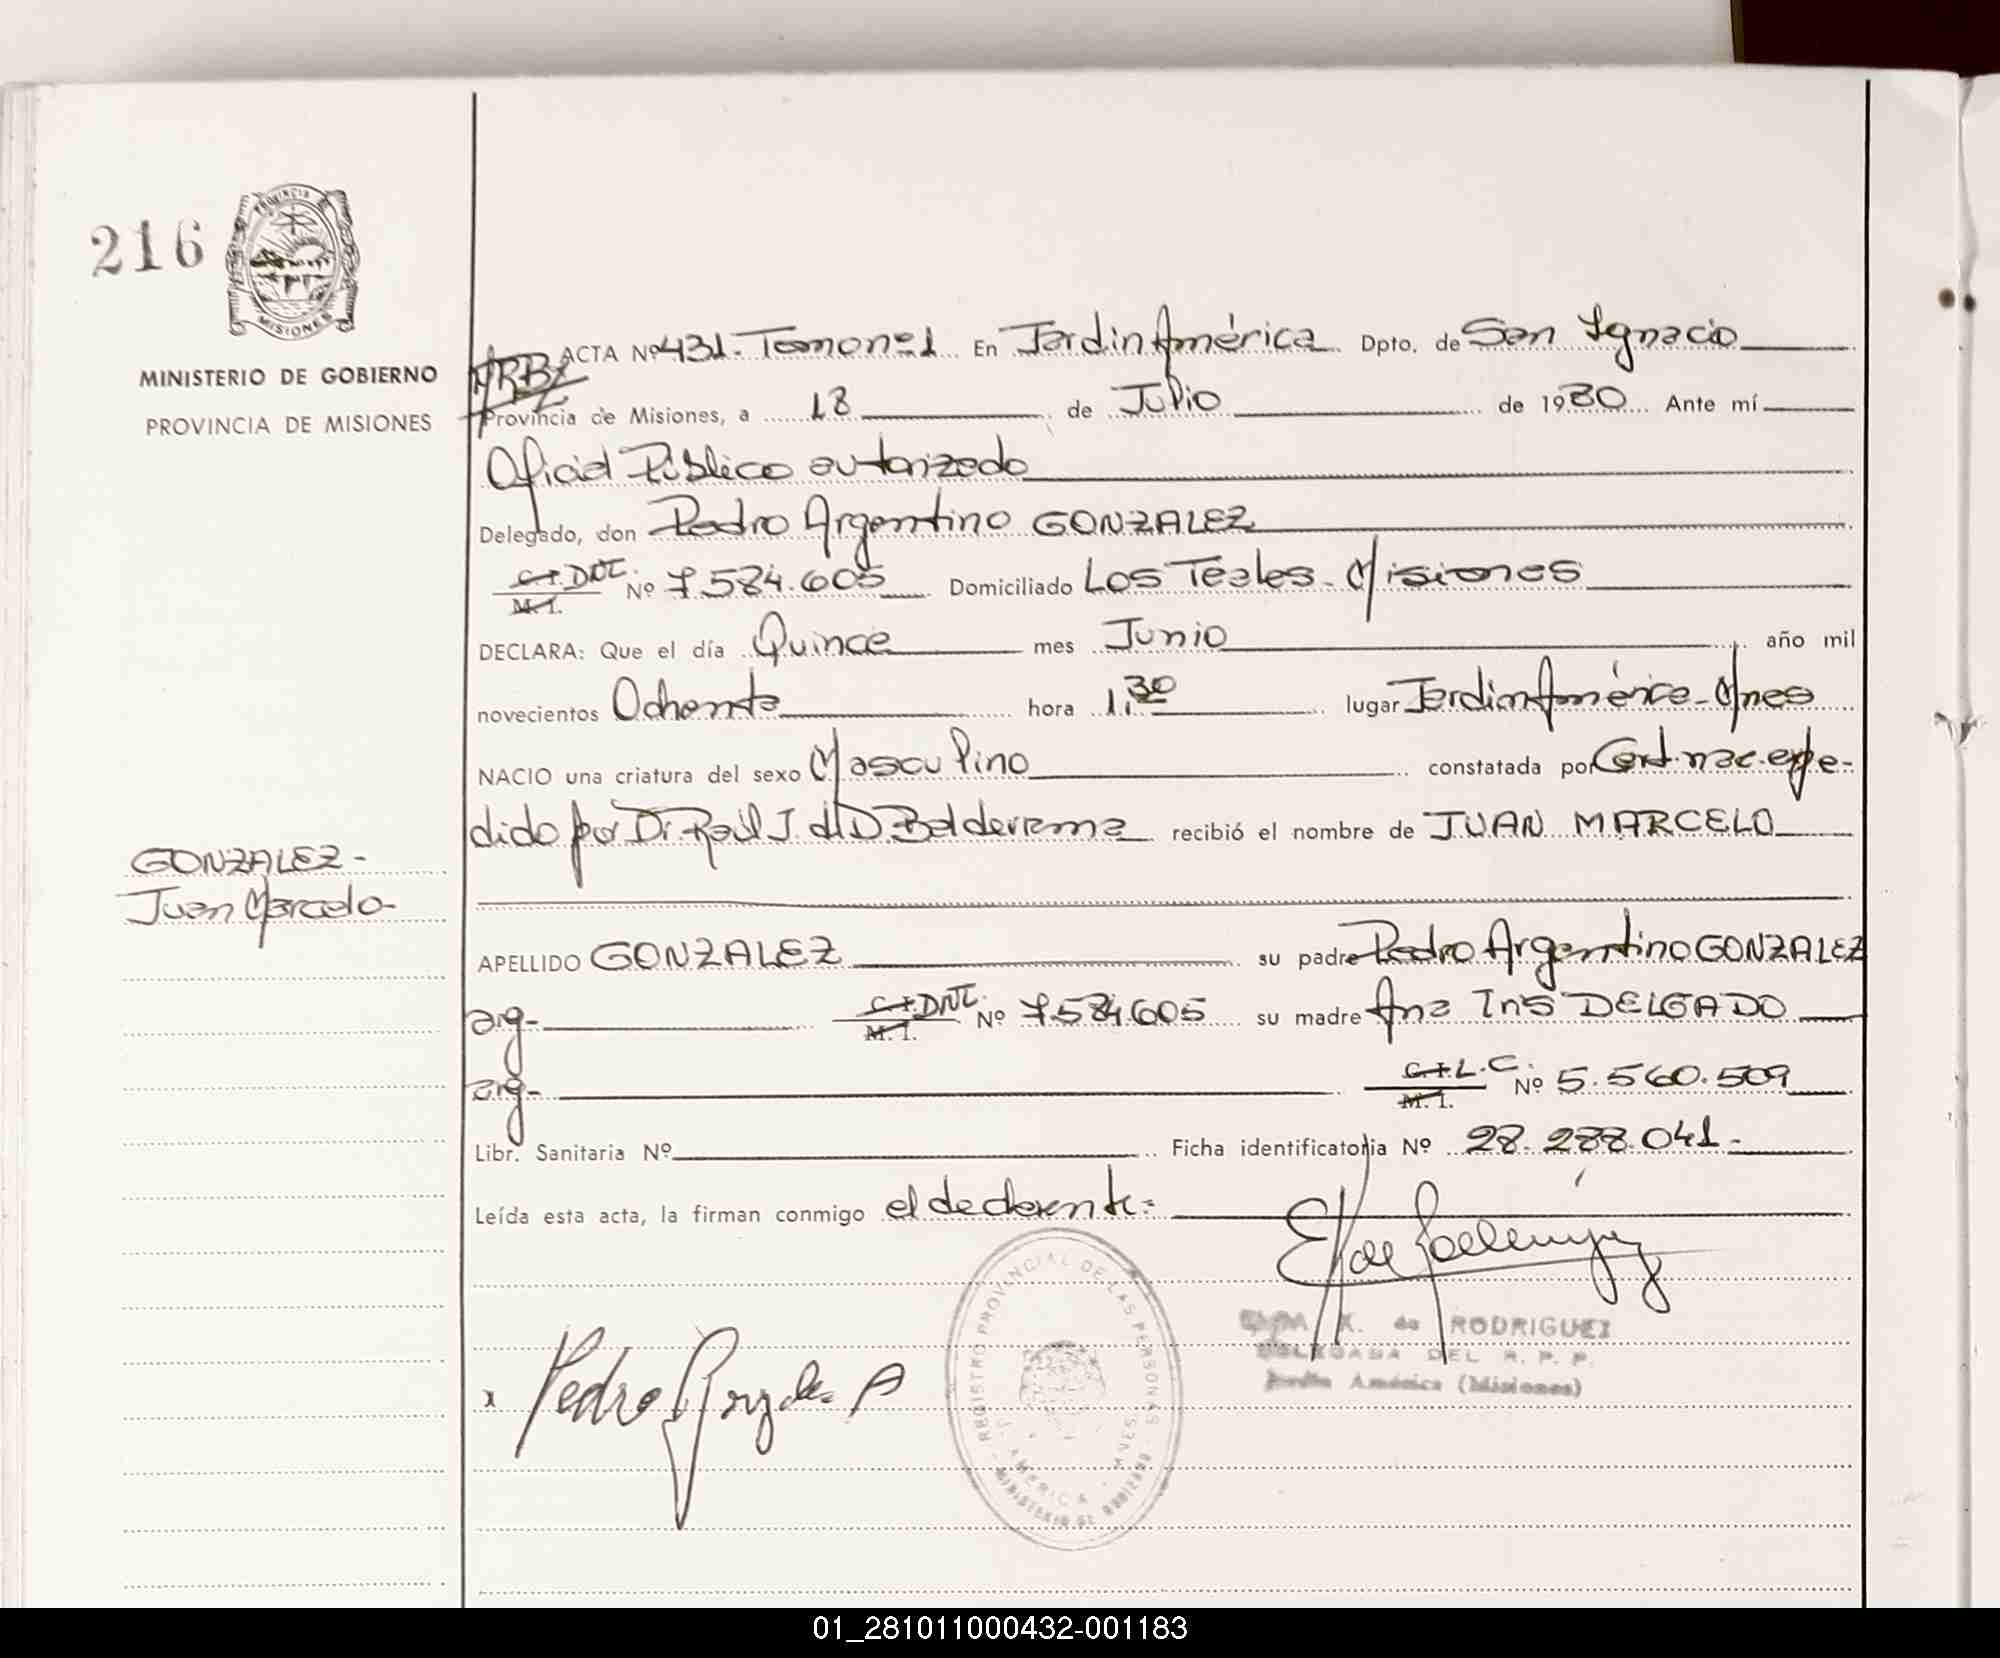 216
PROVINCIA
MISIONES
MINISTERIO DE GOBIERNO
PROVINCIA DE MISIONES
ACTA Nº 431. Tomo nº1 En Jardin América Dpto. de San Ignacio
Provincia de Misiones, a 18 de Julio de 1980 Ante mí
Oficial Público autorizado
Delegado, don Pedro Argentino GONZALEZ
C.I. DNI. M.I. Nº 7.584.605 Domiciliado Los Teales. Misiones
DECLARA: Que el día Quince mes Junio año mil
novecientos Ochenta hora 1,30 lugar Jardin América - Mnes
NACIO una criatura del sexo Masculino constatada por Cert. nac. expe-
dido por Dr. Raúl J. d/D Balderrama recibió el nombre de JUAN MARCELO
GONZALEZ -
Juan Marcelo -
APELLIDO GONZALEZ su padre Pedro Argentino GONZALEZ
arg- C.I. DNI. M.I. Nº 7.584.605 su madre Ana Inés DELGADO
arg- C.I. L.C. M.I. Nº 5.560.509
Libr. Sanitaria Nº Ficha identificatoria Nº 28.288.041.-
Leída esta acta, la firman conmigo el declarante.=
K. de RODRIGUEZ
DELEGADA DEL R. P. P.
Jardín América (Misiones)
x Pedro Gonzalez A
REGISTRO PROVINCIAL DE LAS PERSONAS
J. AMERICA - MNES.
MINISTERIO DE GOBIERNO
01_281011000432-001183